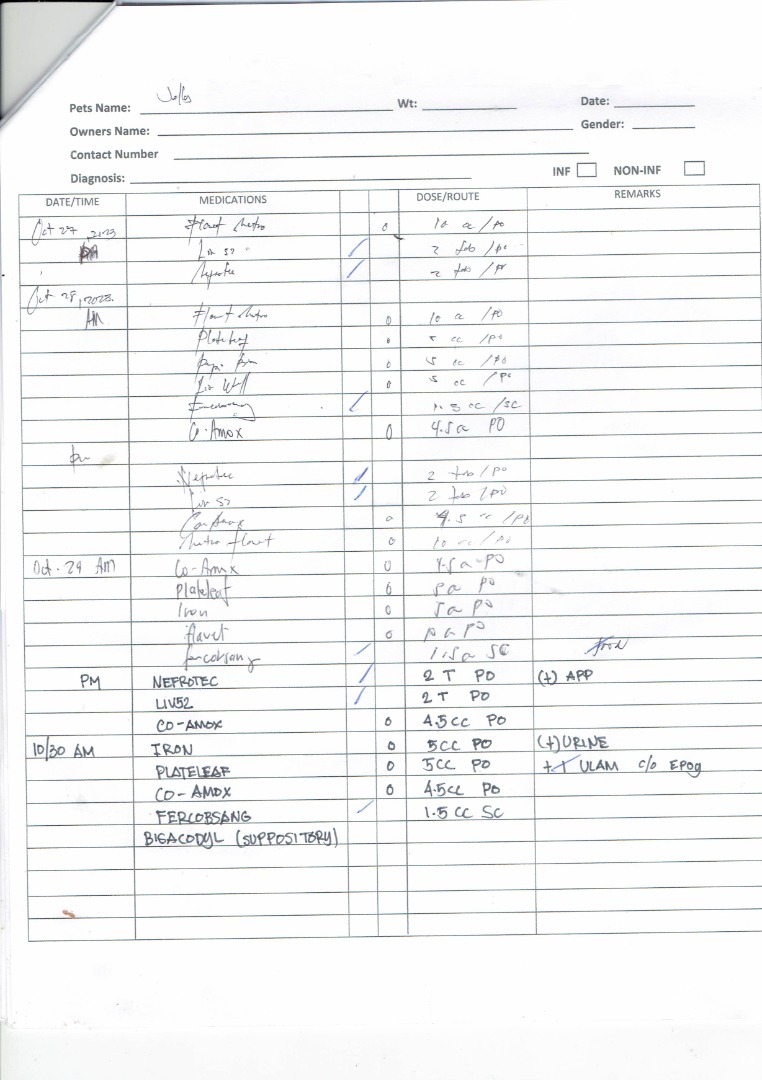 Pets Name: Wt: Date:
Owners Name: Gender:
Contact Number
Diagnosis: INF NON-INF
DATE/TIME MEDICATIONS DOSE/ROUTE REMARKS
Oct 27, 2023 0 10 cc /PO
Liv 52 / 2 tab /po
/ 2 tab /po
Oct 28, 2023.
AM 0 10 cc /PO
0 5 cc /PO
0 5 cc /PO
Liv Well 0 5 cc /PO
/ cc /SC
Co-Amox 0 4.5cc PO
pm
Nefrotec / 2 tab /po
Liv 52 / 2 tab /po
Co-Amox 0 4.5 cc /PO
Metro flavet 0 10 cc /PO
Oct. 29 AM Co-Amx 0 4.5cc PO
Plateleaf 0 PO
Iron 0 5cc PO
flavet 0 PO
fercobsang / 1.5cc SC
PM NEFROTEC / 2 T PO (+) APP
LIV52 / 2 T PO
CO-AMOX 0 4.5cc PO
10/30 AM IRON 0 5cc PO (+) URINE
PLATELEAF 0 5cc PO ULAM c/o EPOG
CO-AMOX 0 4.5cc PO
FERCOBSANG / 1.5 cc SC
BISACODYL (SUPPOSITORY)